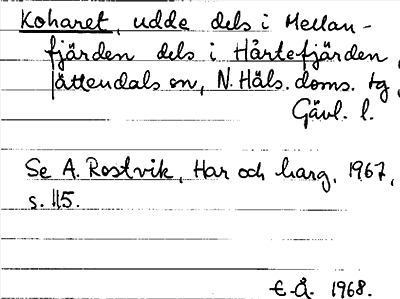 Koharet, udde dels i Mellan-
fjärden dels i Hårtefjärden,
Jättendals sn, N. Häls. doms. tg,
Gävl. l.
Se A. Rostvik, Har och harg, 1967,
s. 115.
E. Å. 1968.